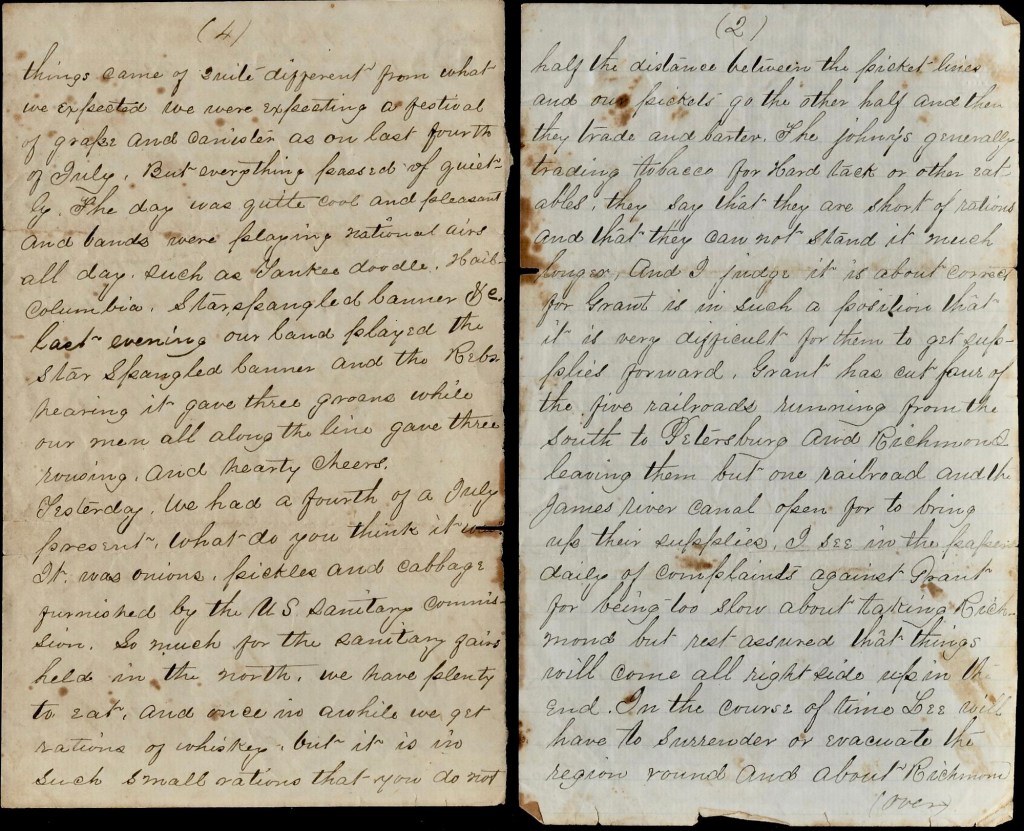 (4)
things came of quite different from what
we expected we were expecting a festival
of grape and canister as on last fourth
of July. But everything passed of quiet-
ly. The day was quite cool and pleasant
and bands were playing national airs
all day. such as Yankee doodle, Hail
Columbia, Starspangled banner &c.
last evening our band played the
Star Spangled banner and the Rebs
hearing it gave three groans while
our men all along the line gave three
rousing, and hearty cheers.
Yesterday, we had a fourth of a July
present, what do you think it
It was onions, pickles and cabbage
furnished by the U S sanitary commis-
sion. So much for the sanitary fairs
held in the north, we have plenty
to eat, and once in awhile we get
rations of whiskey. but it is in
such small rations that you do not
(2)
half the distance between the picket lines
and our pickets go the other half and then
they trade and barter. The johny's generally
trading tobacco for Hard tack or other eat-
ables, they say that they are short of rations
and that they can not stand it much
longer, And I judge it is about correct
for Grant is in such a position that
it is very difficult for them to get sup-
plies forward. Grant has cut four of
the five railroads running from the
south to Petersburg and Richmond
leaving them but one railroad and the
James river canal open for to bring
up their supplies, I see in the papers
daily of complaints against Grant
for being too slow about taking Rich-
mond but rest assured that things
will come all right side up in the
end. In the course of time Lee will
have to surrender or evacuate the
region round and about Richmond
(over)